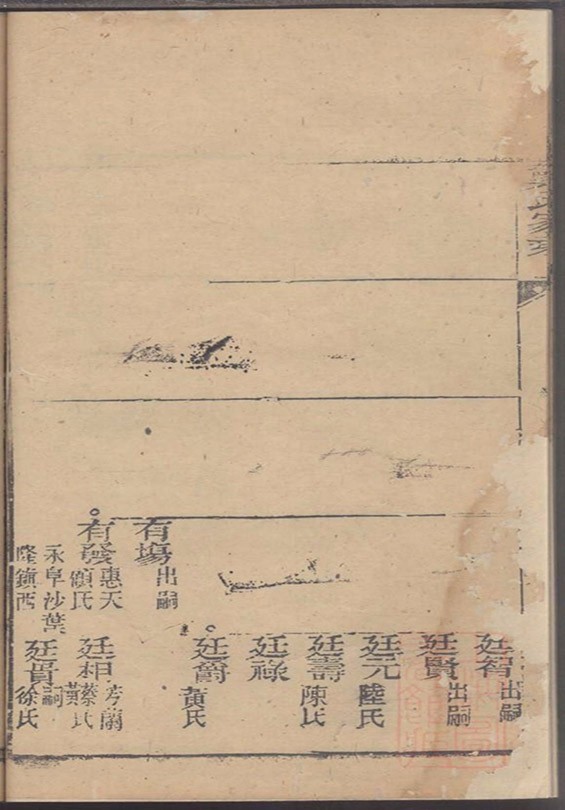 氏家乘
有塲
出嗣
有發
惠天
顧氏
永阜沙葉
隆鎮西
廷智
出嗣
廷賢
出嗣
廷元
陸氏
廷壽
陳氏
廷祿
廷爵
黃氏
廷相
芳蘭
蔡氏
黃
廷貴
嗣
徐氏